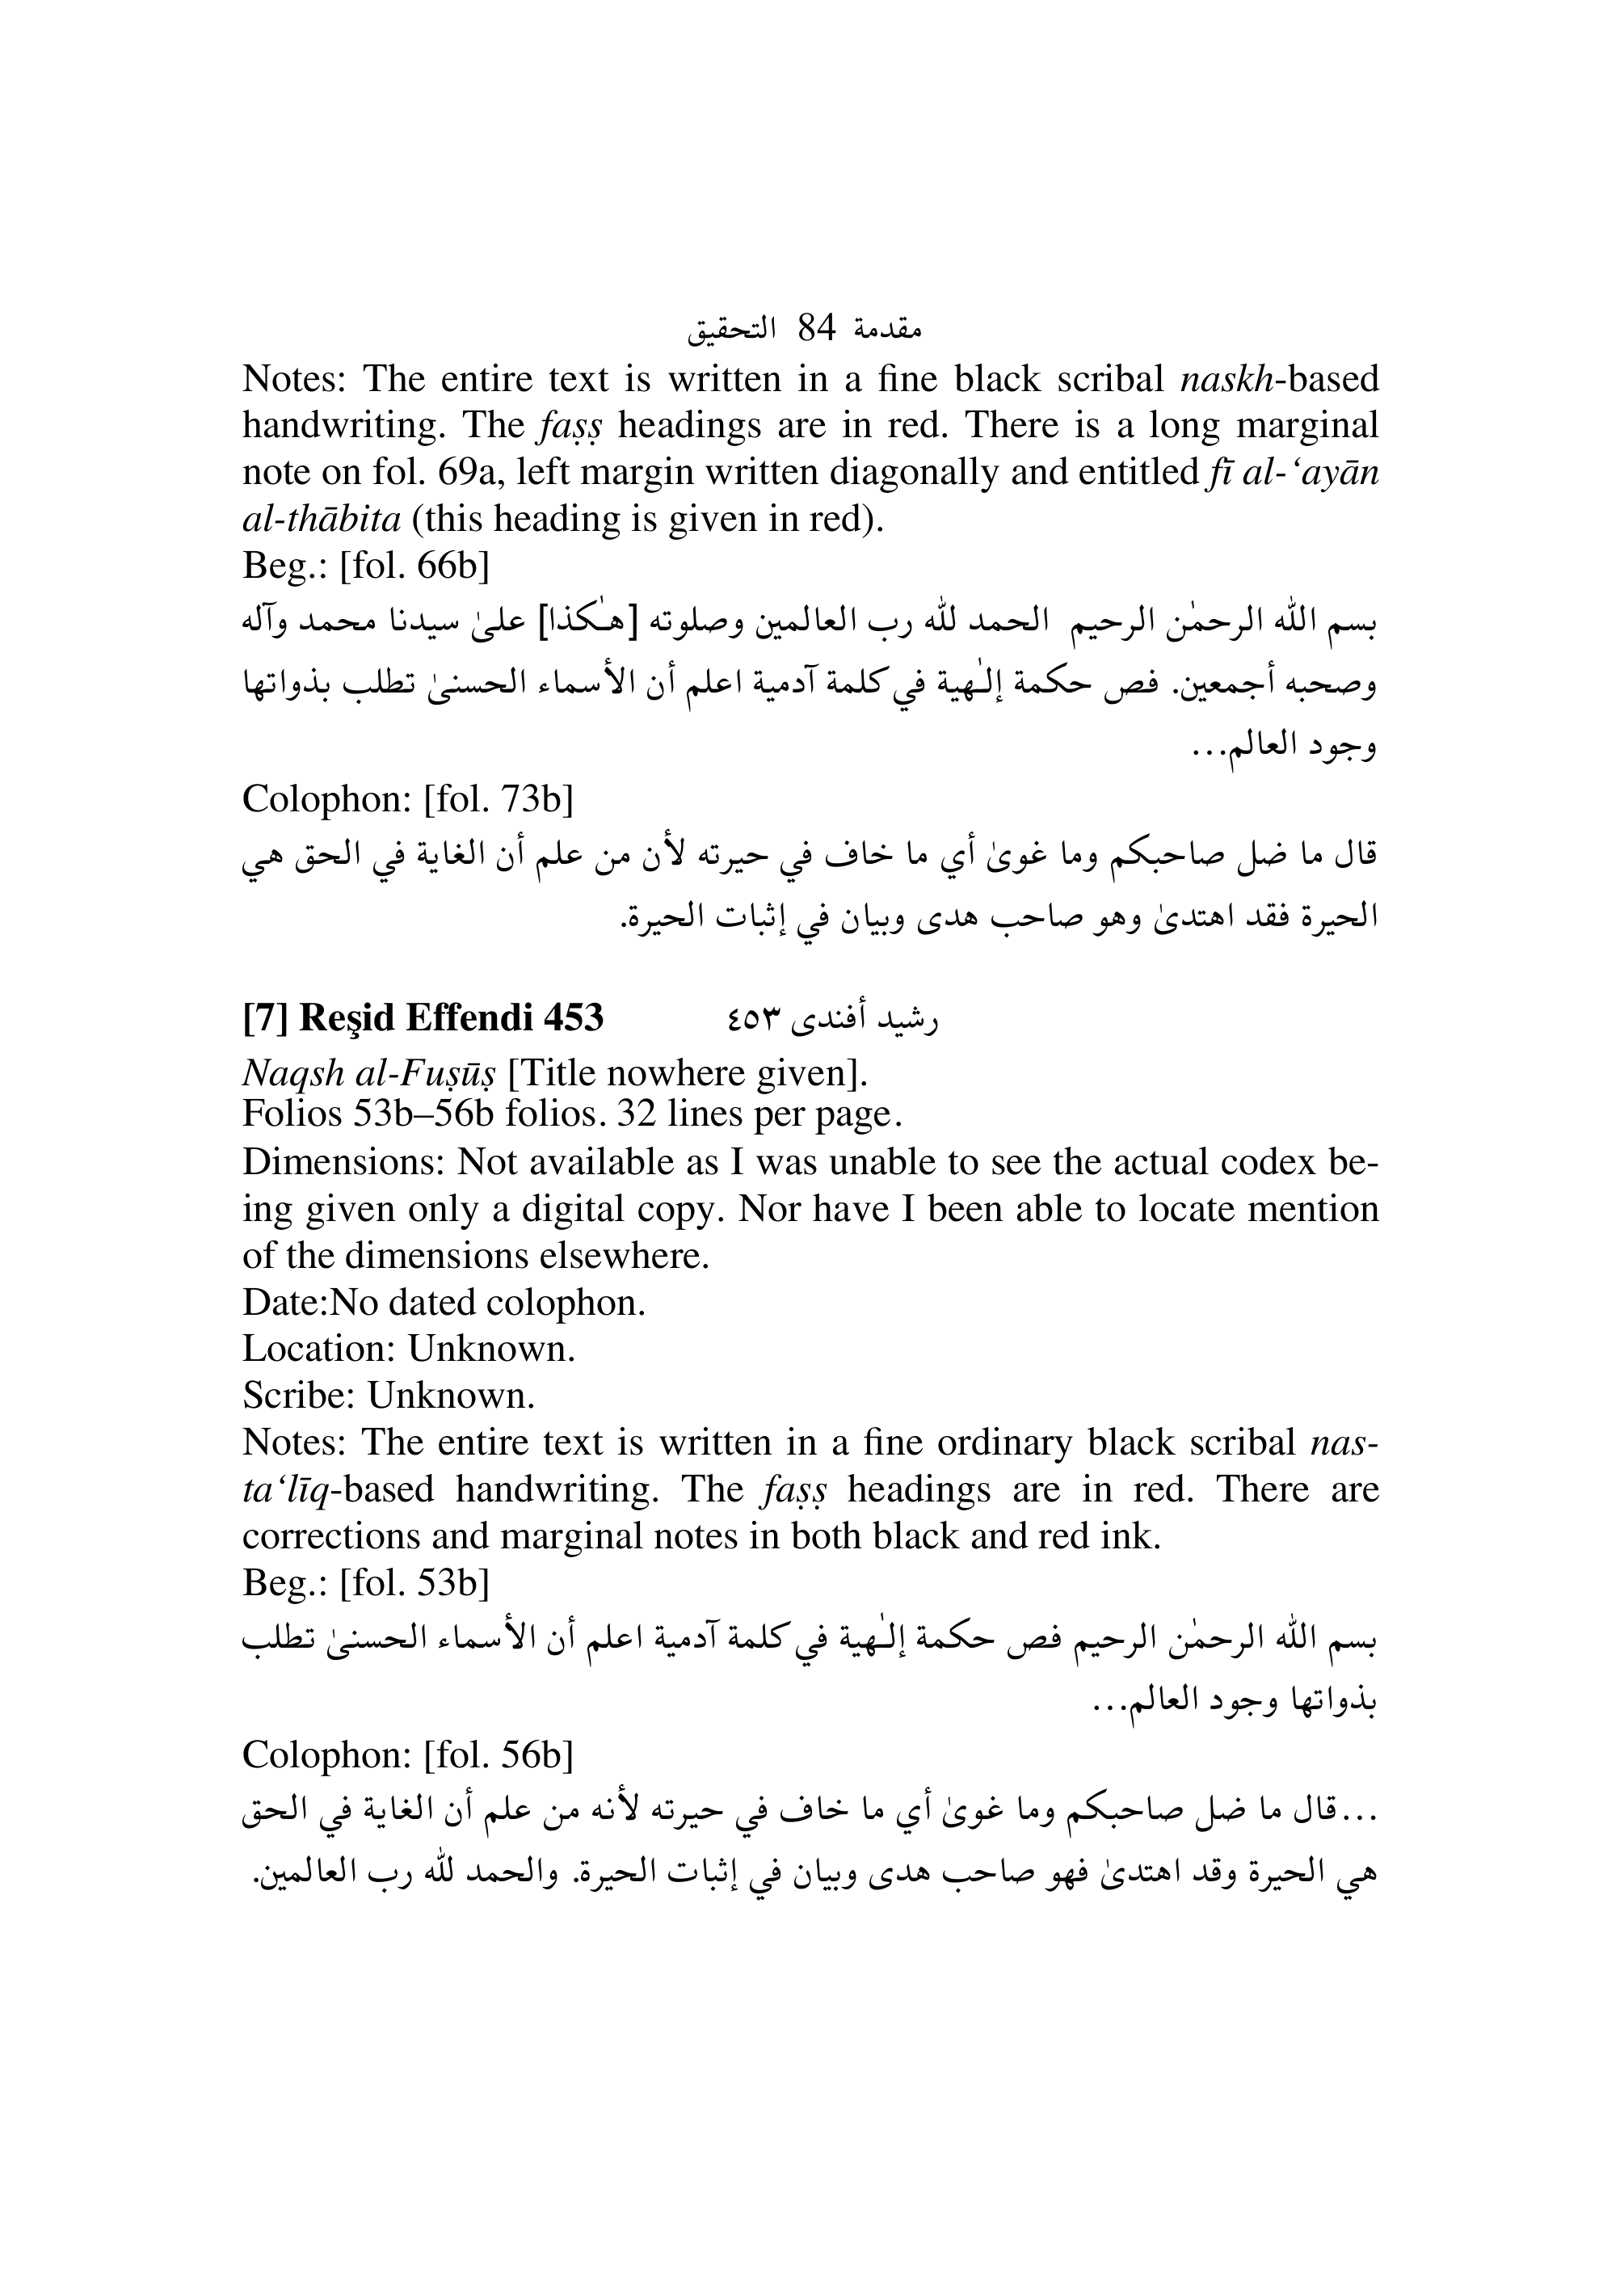 مقدمة 84 التحقيق
Notes: The entire text is written in a fine black scribal naskh-based
handwriting. The faṣṣ headings are in red. There is a long marginal
note on fol. 69a, left margin written diagonally and entitled fī al-‘ayān
al-thābita (this heading is given in red).
Beg.: [fol. 66b]
بسم الله الرحمٰن الرحيم الحمد لله رب العالمين وصلوته [هـٰكذا] علىٰ سيدنا محمد وآله
وصحبه أجمعين. فص حكمة إلـٰهية في كلمة آدمية اعلم أن الأسماء الحسنىٰ تطلب بذواتها
وجود العالم…
Colophon: [fol. 73b]
قال ما ضل صاحبكم وما غوىٰ أي ما خاف في حيرته لأن من علم أن الغاية في الحق هي
الحيرة فقد اهتدىٰ وهو صاحب هدى وبيان في إثبات الحيرة.
[7] Reşid Effendi 453 رشيد أفندى ٤٥٣
Naqsh al-Fuṣūṣ [Title nowhere given].
Folios 53b–56b folios. 32 lines per page.
Dimensions: Not available as I was unable to see the actual codex be-
ing given only a digital copy. Nor have I been able to locate mention
of the dimensions elsewhere.
Date:No dated colophon.
Location: Unknown.
Scribe: Unknown.
Notes: The entire text is written in a fine ordinary black scribal nas-
ta‘līq-based handwriting. The faṣṣ headings are in red. There are
corrections and marginal notes in both black and red ink.
Beg.: [fol. 53b]
بسم الله الرحمٰن الرحيم فص حكمة إلـٰهية في كلمة آدمية اعلم أن الأسماء الحسنىٰ تطلب
بذواتها وجود العالم…
Colophon: [fol. 56b]
…قال ما ضل صاحبكم وما غوىٰ أي ما خاف في حيرته لأنه من علم أن الغاية في الحق
هي الحيرة وقد اهتدىٰ فهو صاحب هدى وبيان في إثبات الحيرة. والحمد لله رب العالمين.